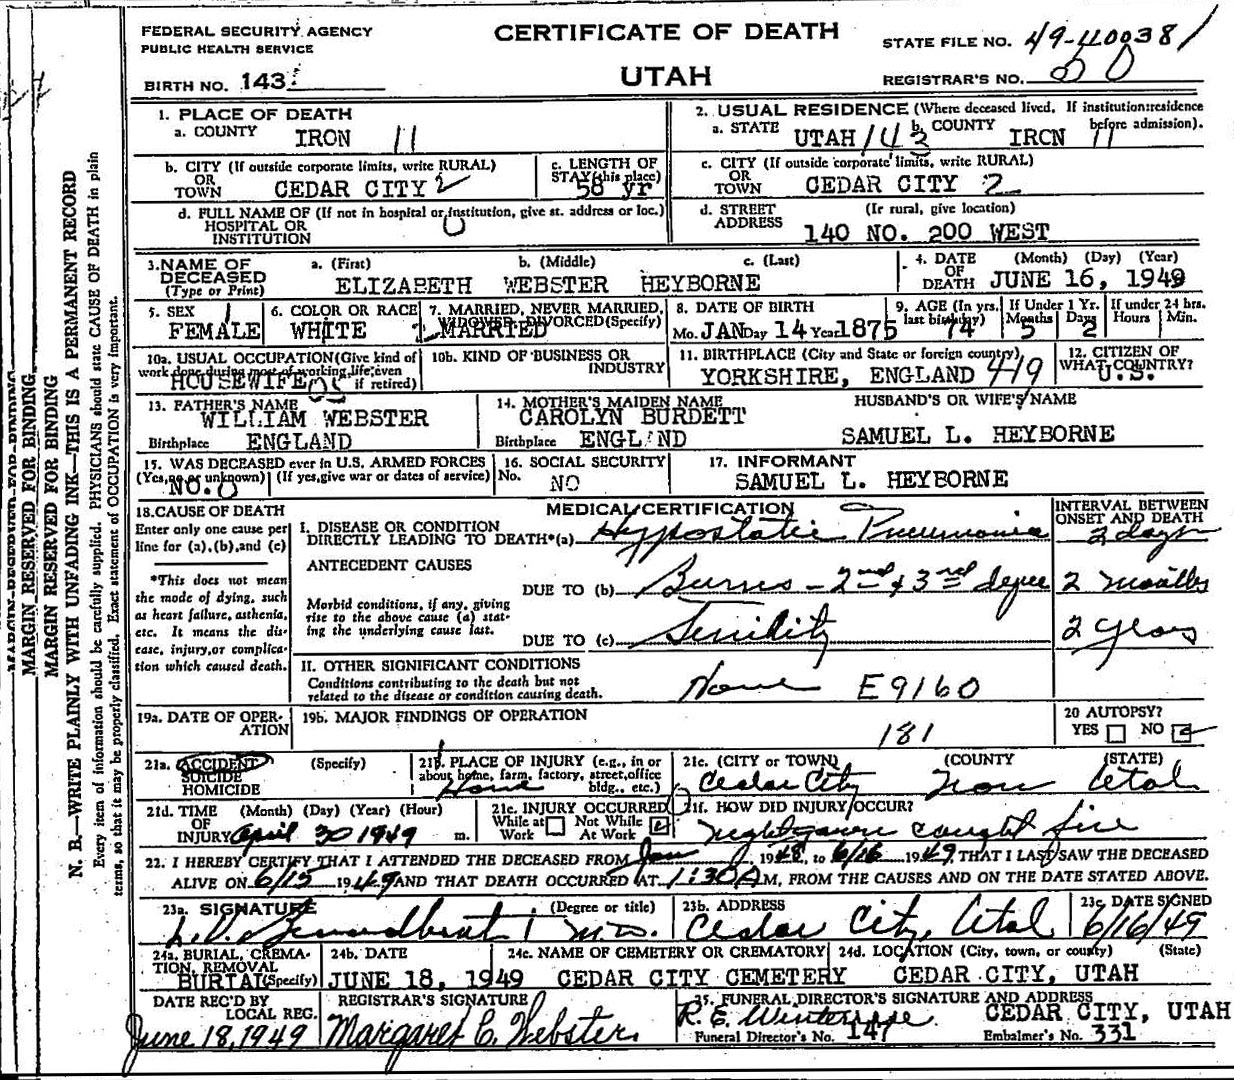 FEDERAL SECURITY AGENCY
PUBLIC HEALTH SERVICE
BIRTH NO. 143
CERTIFICATE OF DEATH
UTAH
STATE FILE NO. 49-400381
REGISTRAR'S NO. 80
MARGIN RESERVED FOR BINDING
MARGIN RESERVED FOR BINDING
N. B.—WRITE PLAINLY WITH UNFADING INK—THIS IS A PERMANENT RECORD
Every item of information should be carefully supplied. PHYSICIANS should state CAUSE OF DEATH in plain
terms, so that it may be properly classified. Exact statement of OCCUPATION is very important.
1. PLACE OF DEATH
a. COUNTY IRON 11
2. USUAL RESIDENCE (Where deceased lived. If institution: residence
before admission).
a. STATE UTAH 143 b. COUNTY IRON 11
b. CITY (If outside corporate limits, write RURAL)
OR
TOWN CEDAR CITY 2
c. LENGTH OF
STAY (this place)
58 yr
c. CITY (If outside corporate limits, write RURAL)
OR
TOWN CEDAR CITY 2
d. FULL NAME OF (If not in hospital or institution, give st. address or loc.)
HOSPITAL OR
INSTITUTION 0
d. STREET (If rural, give location)
ADDRESS
140 NO. 200 WEST
3. NAME OF a. (First) b. (Middle) c. (Last)
DECEASED
(Type or Print) ELIZABETH WEBSTER HEYBORNE
4. DATE (Month) (Day) (Year)
OF
DEATH JUNE 16, 1949
5. SEX
FEMALE
6. COLOR OR RACE
WHITE
7. MARRIED, NEVER MARRIED,
WIDOWED, DIVORCED (Specify)
MARRIED
8. DATE OF BIRTH
Mo. JAN Day 14 Year 1875
9. AGE (In yrs. last birthday) 74
If Under 1 Yr. Months 5 Days 2
If under 24 hrs. Hours Min.
10a. USUAL OCCUPATION (Give kind of
work done during most of working life, even
if retired)
HOUSEWIFE
10b. KIND OF BUSINESS OR
INDUSTRY
11. BIRTHPLACE (City and State or foreign country)
YORKSHIRE, ENGLAND 419
12. CITIZEN OF
WHAT COUNTRY?
U.S.
13. FATHER'S NAME
WILLIAM WEBSTER
Birthplace ENGLAND
14. MOTHER'S MAIDEN NAME
CAROLYN BURDETT
Birthplace ENGLAND
HUSBAND'S OR WIFE'S NAME
SAMUEL L. HEYBORNE
15. WAS DECEASED ever in U.S. ARMED FORCES
(Yes, no or unknown) (If yes, give war or dates of service)
NO. 0
16. SOCIAL SECURITY
No. NO
17. INFORMANT
SAMUEL L. HEYBORNE
18. CAUSE OF DEATH
Enter only one cause per
line for (a), (b), and (c)
*This does not mean
the mode of dying, such
as heart failure, asthenia,
etc. It means the dis-
ease, injury, or complica-
tion which caused death.
MEDICAL CERTIFICATION
INTERVAL BETWEEN
ONSET AND DEATH
I. DISEASE OR CONDITION
DIRECTLY LEADING TO DEATH*(a) Hypostatic Pneumonia 2 days
ANTECEDENT CAUSES
DUE TO (b) Burns - 2nd & 3rd degree 2 months
Morbid conditions, if any, giving
rise to the above cause (a) stat-
ing the underlying cause last.
DUE TO (c) Senility 2 years
II. OTHER SIGNIFICANT CONDITIONS
Conditions contributing to the death but not
related to the disease or condition causing death.
None E9160
19a. DATE OF OPER-
ATION
19b. MAJOR FINDINGS OF OPERATION
181
20 AUTOPSY?
YES NO
21a. ACCIDENT (Specify)
SUICIDE
HOMICIDE
21b. PLACE OF INJURY (e.g., in or
about home, farm, factory, street, office
bldg., etc.)
Home
21c. (CITY OR TOWN) (COUNTY) (STATE)
Cedar City Iron Utah
21d. TIME (Month) (Day) (Year) (Hour)
OF
INJURY April 30 1949 m.
21e. INJURY OCCURRED
While at Not While
Work At Work
21f. HOW DID INJURY OCCUR?
Nightgown caught fire
22. I HEREBY CERTIFY THAT I ATTENDED THE DECEASED FROM Jan 1948, to 6/16 1949, THAT I LAST SAW THE DECEASED
ALIVE ON 6/15 1949 AND THAT DEATH OCCURRED AT 1:30 A M, FROM THE CAUSES AND ON THE DATE STATED ABOVE.
23a. SIGNATURE (Degree or title)
M.D.
23b. ADDRESS
Cedar City, Utah
23c. DATE SIGNED
6/16/49
24a. BURIAL, CREMA-
TION, REMOVAL
BURIAL (Specify)
24b. DATE
JUNE 18, 1949
24c. NAME OF CEMETERY OR CREMATORY
CEDAR CITY CEMETERY
24d. LOCATION (City, town, or county) (State)
CEDAR CITY, UTAH
DATE REC'D BY
LOCAL REG.
June 18, 1949
REGISTRAR'S SIGNATURE
Margaret C. Webster
25. FUNERAL DIRECTOR'S SIGNATURE AND ADDRESS
R. E. CEDAR CITY, UTAH
Funeral Director's No. 147 Embalmer's No. 331